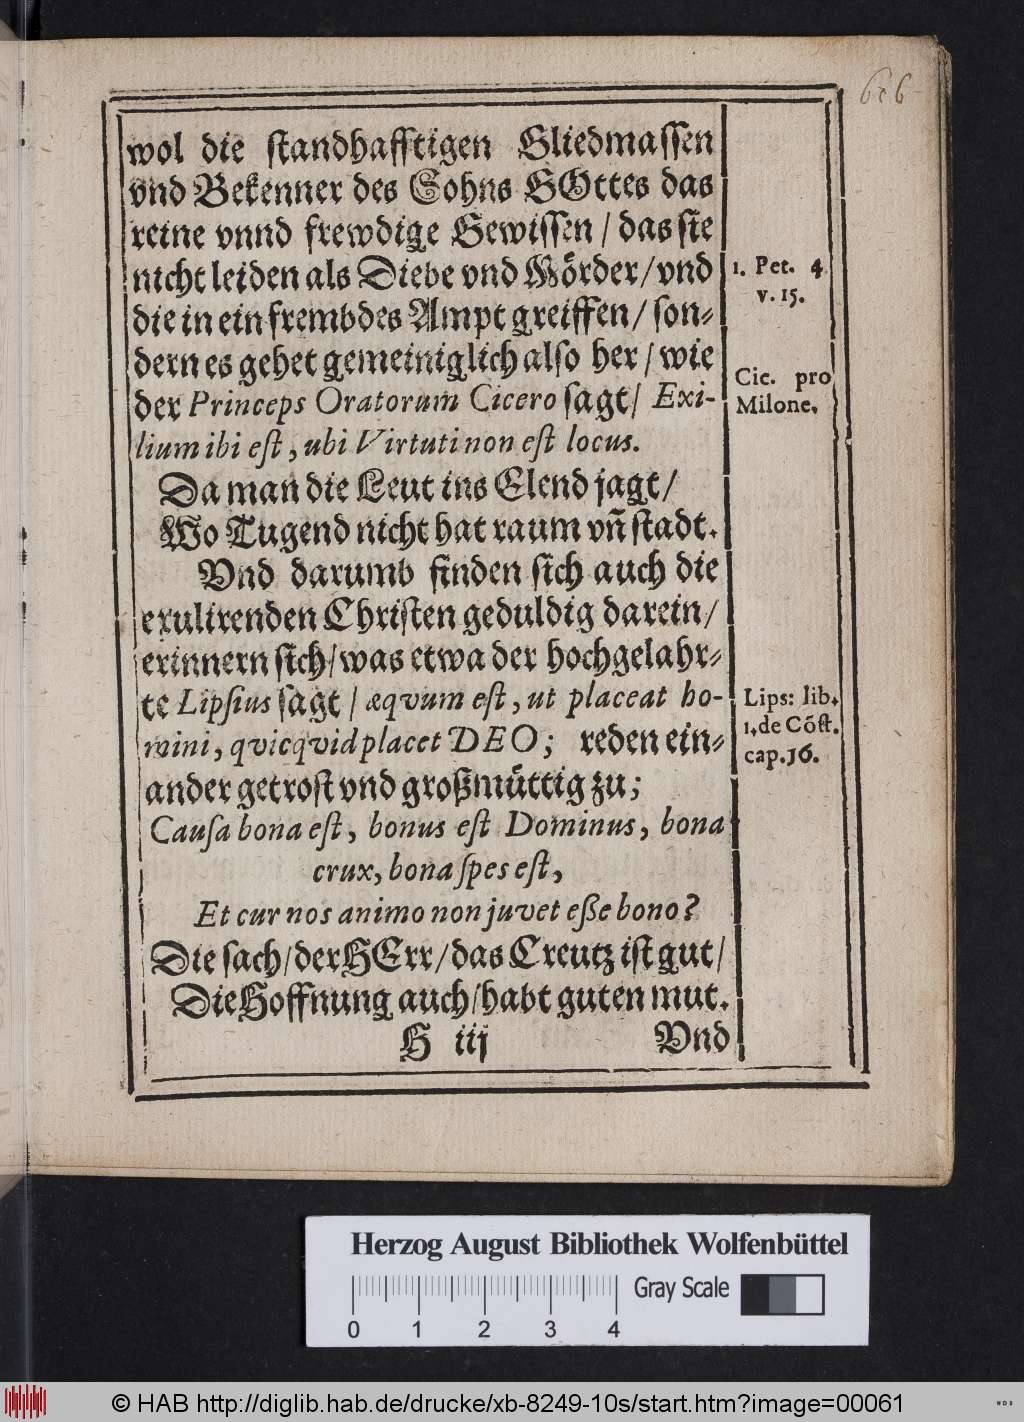 wol die standhafftigen Gliedmassen
vnd Bekenner des Sohns GOttes das
reine vnnd frewdige Gewissen / das sie
nicht leiden als Diebe vnd Mörder / vnd
die in ein frembdes Ampt greiffen / son-
dern es gehet gemeiniglich also her / wie
der Princeps Oratorum Cicero sagt / Exi-
lium ibi est, ubi Virtuti non est locus.
Da man die Leut ins Elend jagt /
Wo Tugend nicht hat raum vñ stadt.
Vnd darumb finden sich auch die
exulirenden Christen geduldig darein /
erinnern sich / was etwa der hochgelahr-
te Lipsius sagt / æqvum est, ut placeat ho-
mini, qvicqvid placet DEO; reden ein-
ander getrost vnd großmütig zu;
Causa bona est, bonus est Dominus, bona
crux, bona spes est,
Et cur nos animo non juvet eße bono?
Die sach / der HErr / das Creutz ist gut /
Die Hoffnung auch / habt guten mut.
H iij Vnd
1. Pet. 4
v. 15.
Cic. pro
Milone.
Lips: lib.
1. de Cõst.
cap. 16.
Herzog August Bibliothek Wolfenbüttel
Gray Scale
0 1 2 3 4
© HAB http://diglib.hab.de/drucke/xb-8249-10s/start.htm?image=00061